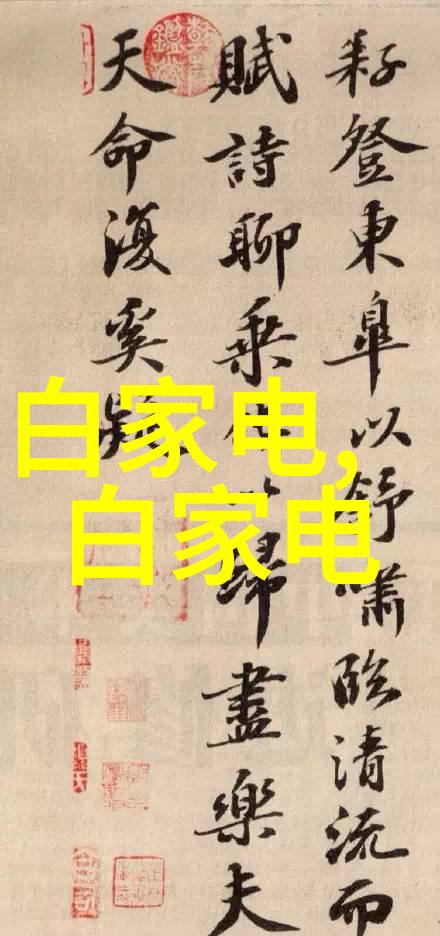 白家电,
白家电
耔登東皋以舒嘯臨清流而
賦詩聊乘化以歸盡樂夫
天命復奚疑